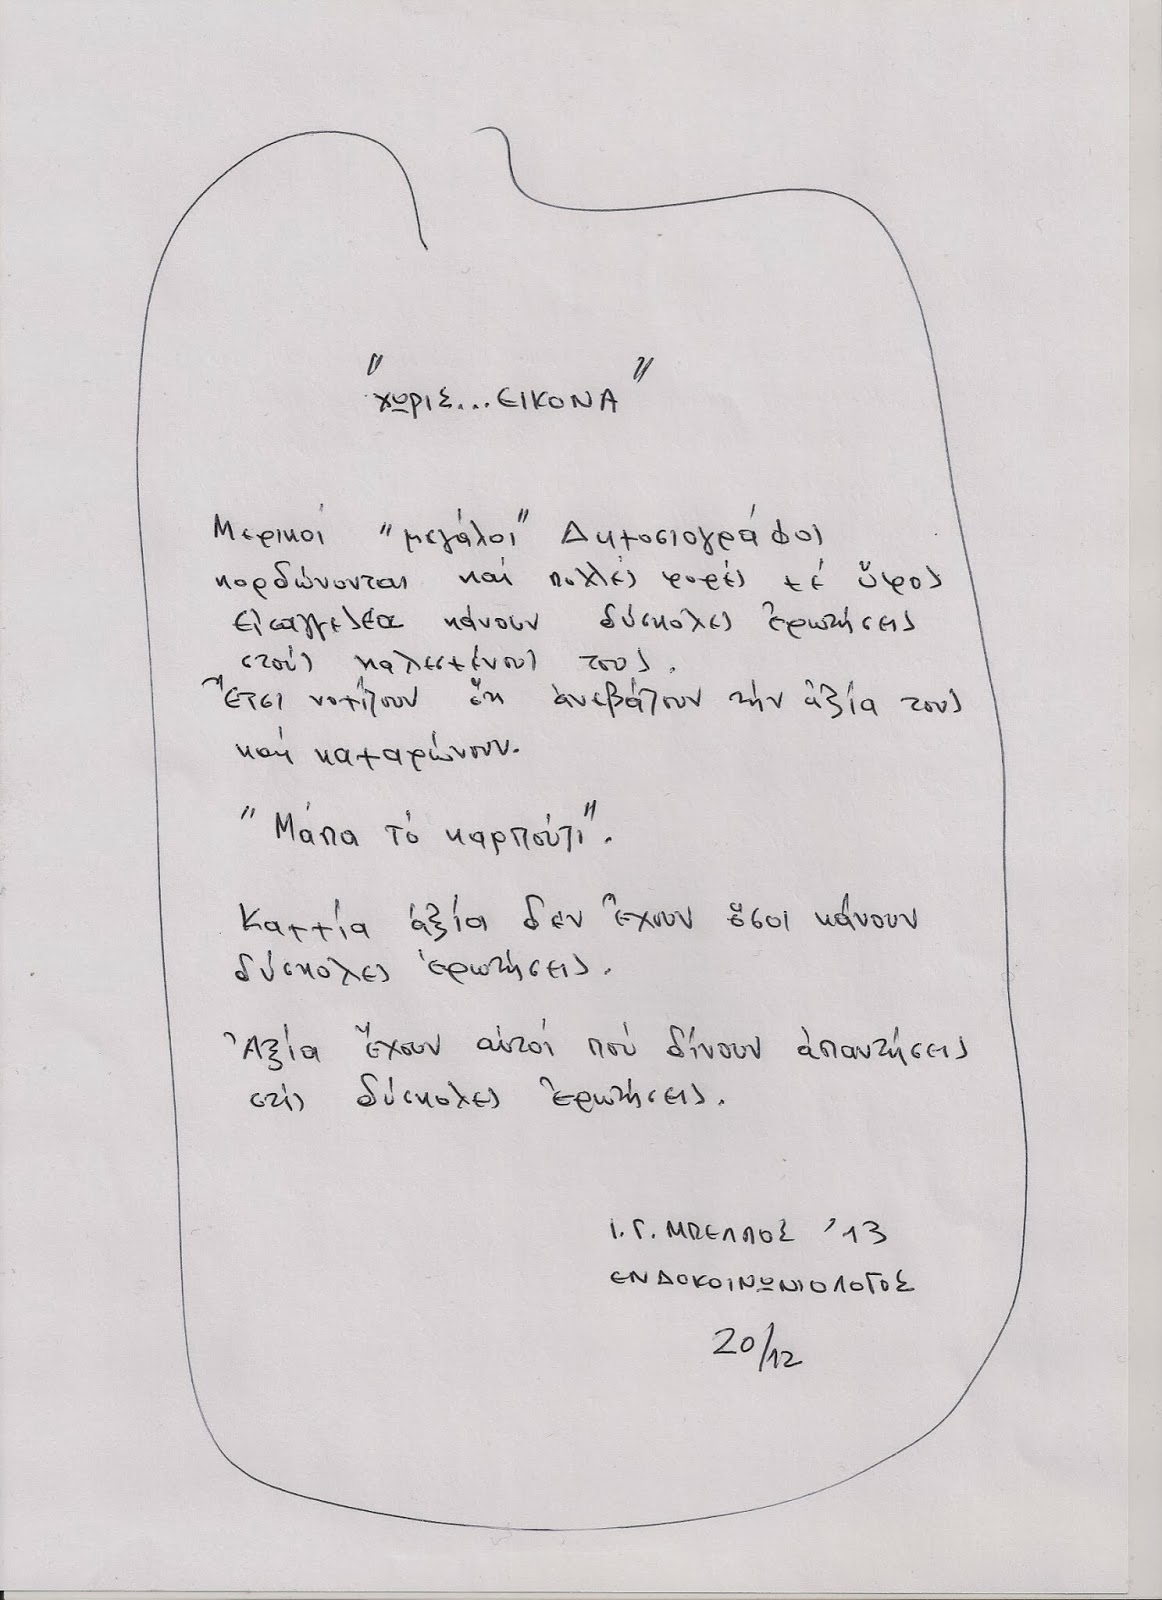 "ΧΩΡΙΣ...ΕΙΚΟΝΑ"
Μερικοί "μεγάλοι" Δημοσιογράφοι
κορδώνονται καί πολλές φορές μέ ὕφος
εἰσαγγελέα κάνουν δύσκολες ἐρωτήσεις
στούς καλεσμένους τους.
Ἔτσι νομίζουν ὅτι ἀνεβάζουν τήν ἀξία τους
καί καμαρώνουν.
"Μάπα τό καρπούζι".
Καμμία ἀξία δεν ἔχουν ὅσοι κάνουν
δύσκολες ἐρωτήσεις.
Ἀξία ἔχουν αὐτοί πού δίνουν ἀπαντήσεις
στίς δύσκολες ἐρωτήσεις.
Ι.Γ. ΜΠΕΛΛΟΣ '13
ΕΝΔΟΚΟΙΝΩΝΙΟΛΟΓΟΣ
20/12